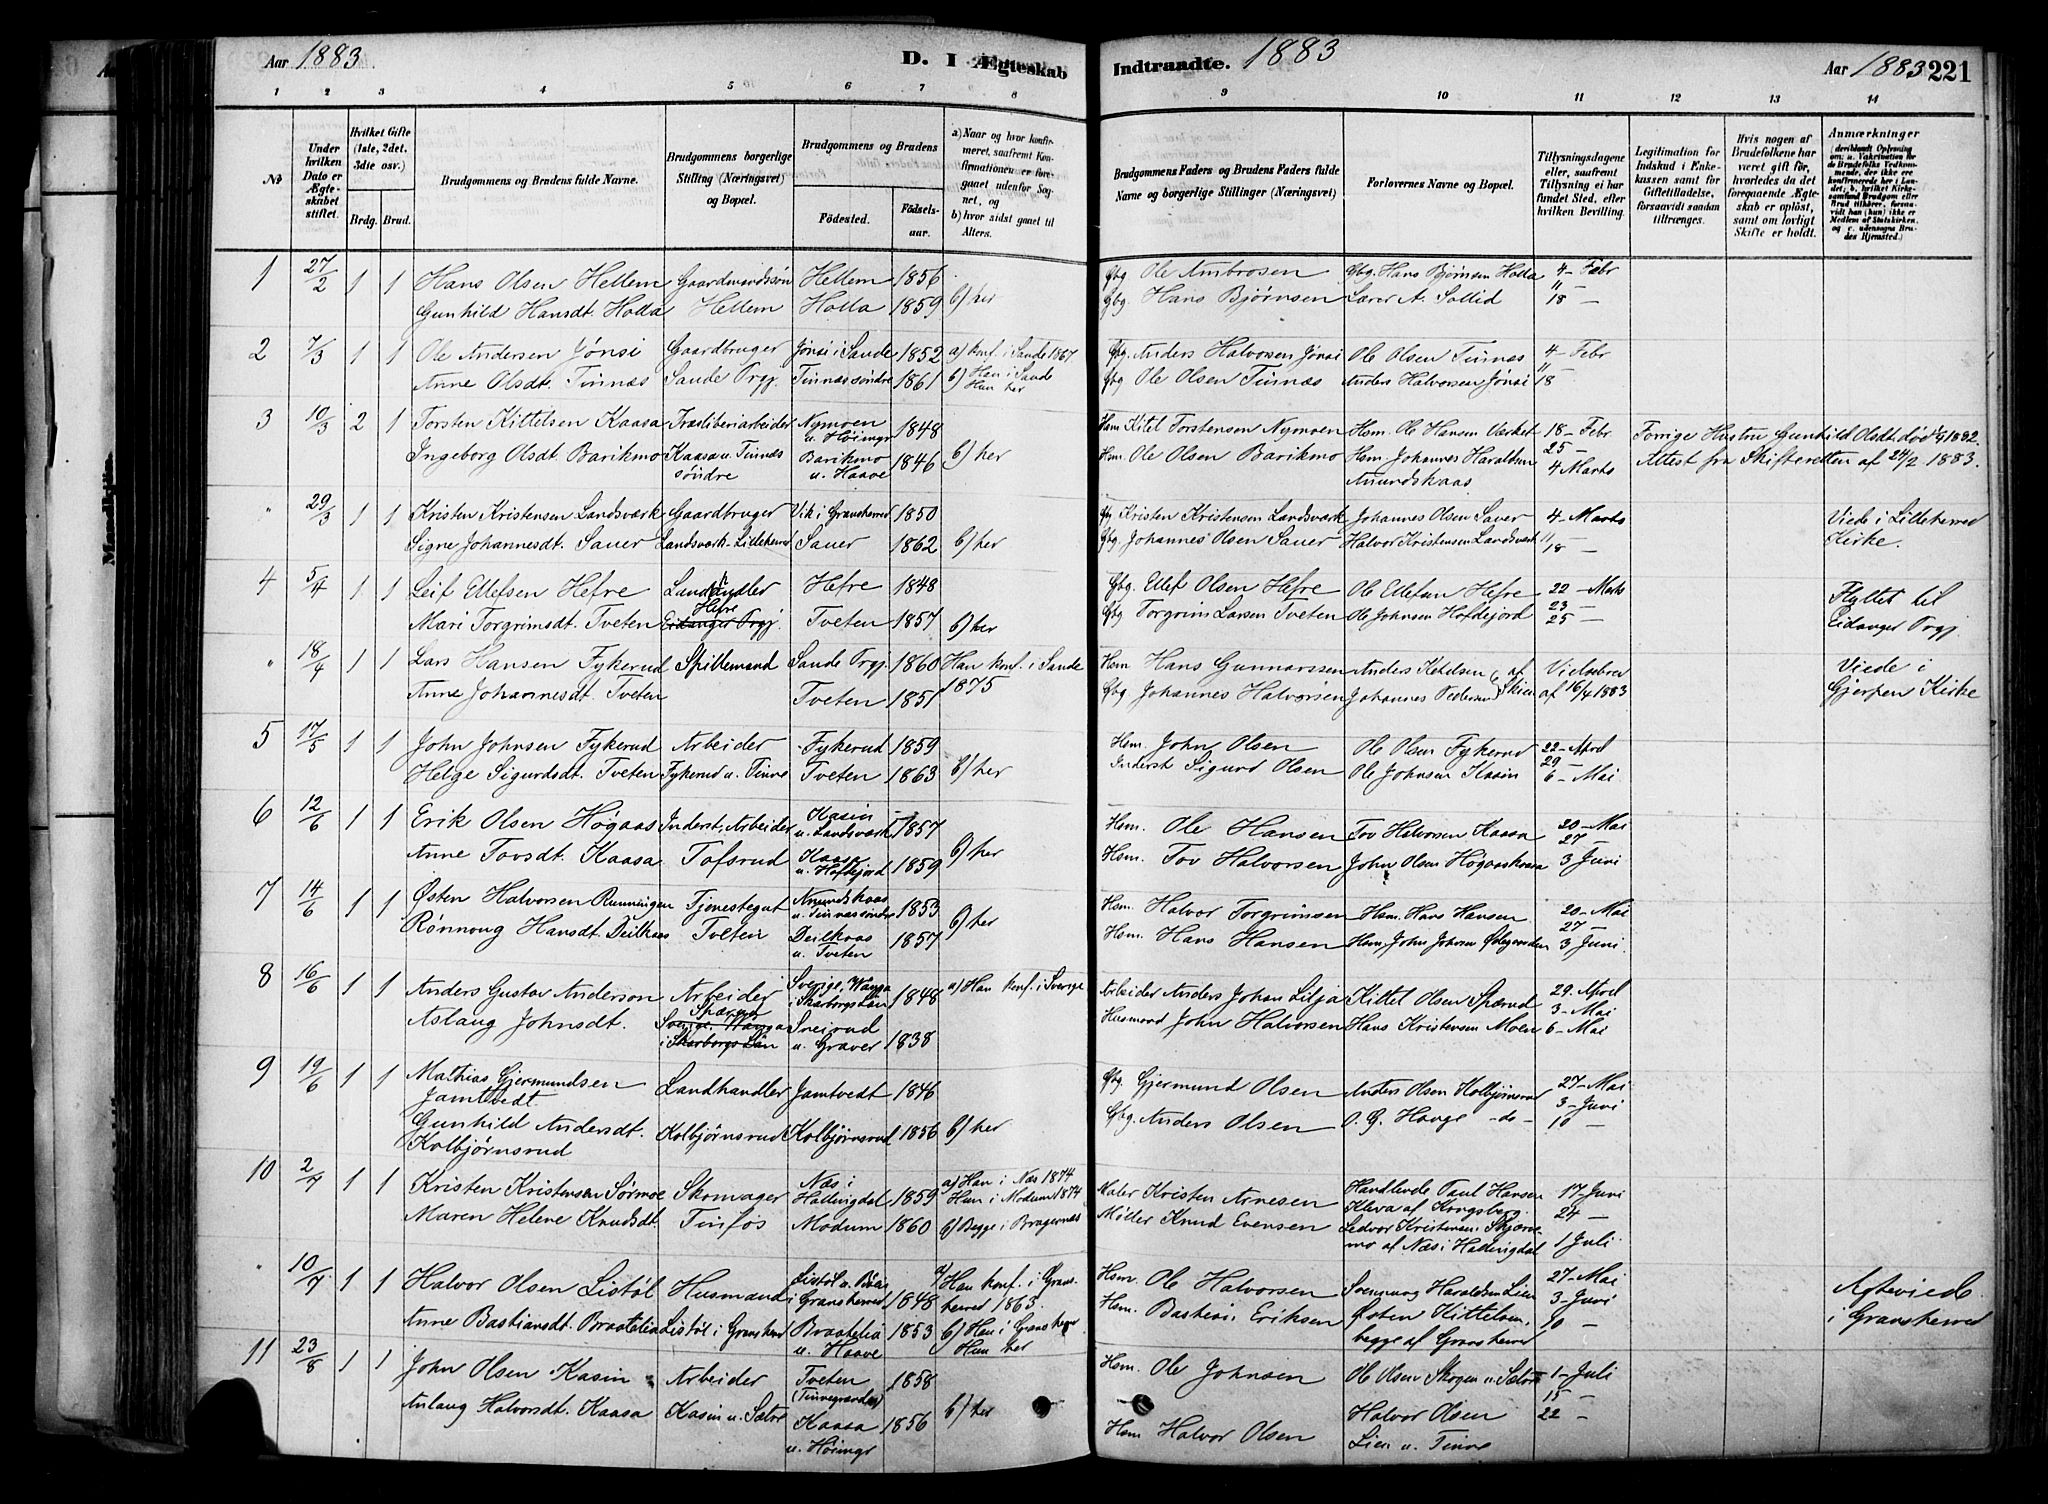 Aar 1883.
D. I Ægteskab
Indtraadte. 1883
Aar 1883 221
1 2 3 4 5 6 7 8 9 10 11 12 13 14
No
Under hvilken Dato er Ægteskabet stiftet.
Hvilket Gifte (1ste, 2det, 3die osv.)
Brdg. Brud.
Brudgommens og Brudens fulde Navne.
Brudgommens borgerlige Stilling (Næringsvei) og Bopæl.
Brudgommens og Brudens
Födested. Födselsaar.
a) Naar og hvor konfirmeret, saafremt Konfirmationen er foregaaet udenfor Sognet, og
b) hvor sidst gaaet til Alters.
Brudgommens Faders og Brudens Faders fulde Navne og borgerlige Stillinger (Næringsvei)
Forlovernes Navne og Bopæl.
Tillysningsdagene eller, saafremt Tillysning ei har fundet Sted, efter hvilken Bevilling.
Legitimation for Indskud i Enkekassen samt for Giftetilladelse, forsaavidt sandan tiltrænges.
Hvis nogen af Brudefolkene har været gift för, hvorledes da det foregaaende Ægteskab er oplöst, samt om lovligt Skifte er holdt.
Anmærkninger
1 27/2 1 1 Hans Olsen Hellem Gaardmandssön Hellem 1856 Gbg Ole Ambrosen Gbg. Hans Bjørnsen Holla 4 - Febr
Gunhild Hansdt. Holla Hellem Holla 1859 b) her Gbg Hans Bjørnsen Lærer A. Sollid 18 -
2 7/3 1 1 Ole Andersen Jønsi Gaardbruger Jønsi i Saude 1852 a) konf. i Saude 1867 Gbg. Anders Halvorsen Jønsi Ole Olsen Tinnæs 4 - Febr
Anne Olsdt. Tinnæs Saude Prgj. Tinnæs söndre 1861 b) Han i Saude Hun her Gbg Ole Olsen Tinnæs Anders Halvorsen Jønsi 18
3 10/3 2 1 Torsten Kittelsen Kaasa Træsliberiarbeider Nymoen u. Höimyr 1848 Hsm Kitil Torstensen Nymoen Hsm. Ole Hansen Værket 18 - Febr Forrige Hustru Gunhild Olsdt. död 1882.
Ingeborg Olsdt. Barikmo Kaasa u. Tinnæs söndre Barikmo u. Haave 1846 b) her Hsm. Ole Olsen Barikmo Hsm. Johannes Haraldsen Amundskaas 25 - 4 Marts Attest fra Skifteretten af 24/2 1883.
" 29/3 1 1 Kristen Kristensen Landsværk Gaardbruger Vik i Gransherred 1850 Kristen Kristensen Landsværk Johannes Olsen Sauer 4 - Marts Viede i Lilleherred
Signe Johannesdt. Sauer Landsværk - Lilleherred Sauer 1862 b) her Gbg. Johannes Olsen Sauer Halvor Kristensen Landsværk 11 18 - Kirke.
4 5/4 1 1 Leif Ellefsen Hefre Landhandler Hefre 1848 Gbg. Ellef Olsen Hefre Ole Ellefsen Hefre 22 - Marts Flyttet til
Mari Torgrimsdt. Tveten Hefre Eidanger Prgj. Tveten 1857 b) her Gbg Torgrim Larsen Tveten Ole Johnsen Hofdejord 23 - 25 - Eidanger Prgj.
" 18/4 1 1 Lars Hansen Fykerud Spillemand Saude Prgj. 1860 Han konf. i Saude 1875 Hsm Hans Gunnarssen Anders Keldsen af Skien Vielsebrev Viede i
Anne Johannesdt. Tveten Tveten 1851 Gbg. Johannes Halvorsen Johannes Pedersen af 16/4 1883 Gjerpen Kirke
5 17/5 1 1 John Johnsen Fykerud Arbeider Fykerud 1859 Hsm. John Olsen Ole Olsen Fykerud 22 - April
Helge Sigurdsdt. Tveten Fykerud u. Tinne Tveten 1863 b) her Inderst Sigurd Olsen Ole Johnsen Kasin 29 - 6 - Mai
6 12/6 1 1 Erik Olsen Högaas Inderst, Arbeider Kasin u. Landsværk 1857 Hsm. Ole Hansen Tov Halvorsen Kaasa 20 - Mai
Anne Tovsdt. Kaasa Tofsrud Kaasa u. Hofdejord 1859 b) her Hsm. Tov Halvorsen John Olsen Högaaskaasa 27 - 3 Juni
7 14/6 1 1 Østen Halvorsen Runningen Tjenestegut Amundskaas u. Tinnæs söndre 1853 Hsm. Halvor Torgrimssen Hsm. Hans Hansen 20 - Mai
Rønnoug Hansdt. Deilkaas Tveten Deilkaas u. Tveten 1857 b) her Hsm. Hans Hansen Hsm. John Johnsen Ødegaarden 27 - 3 Juni
8 16/6 1 1 Anders Gustav Anderson Arbeider Sverige, Wånga i Skarborgs Län 1848 a) Han konf. i Sverige Arbeider Anders Johan Lilja Kittel Olsen Spærud 29. April
Aslaug Johnsdt. Spærud Sverige, Wånga i Skarborgs Län Sneirud u. Graver 1838 Husmand John Halvorsen Hans Kristensen Moen 3 - Mai 6 - Mai
9 19/6 1 1 Mathias Gjermundsen Jamtvedt. Landhandler Jamtvedt 1846 Gbg. Gjermund Olsen Anders Olsen Kolbjörnsrud 27 - Mai
Gunhild Andersdt. Kolbjørnsrud Kolbjørnsrud Kolbjørnsrud 1856 b) her Gbg. Anders Olsen O. G. Hauge - do - 3 - Juni 10 -
10 2/7 1 1 Kristen Kristensen Sørmoe Skomager Næs i Hallingdal 1859 a) Han i Næs 1874 Hun i Modum 1874 Maler Kristen Arnesen Handlende Paul Hansen Kleva af Kongsberg. 17 - Juni
Maren Helene Knudsdt. Tinfos Modum 1860 b) Begge i Bragernæs Møller Knud Evensen Ledvor Kristensen Skjærmo af Næs i Hallingdal 24 - 1 Juli
" 10/7 1 1 Halvor Olsen Listöl Husmand Listöl u. Böen i Gransherred 1848 a) Han konf. i Gransherred 1863. Hsm. Ole Halvorsen Svennung Haraldsen Lien 27 - Mai Ægteviede
Anne Bastiansdt. Braatelia Listöl i Gransherred Braatelia u. Haave 1853 b) Han i Gransherred Hun her Hsm. Bastian Eriksen Østen Kittelsen, begge af Gransherred 3 - Juni 10 - i Gransherred
11 23/8 1 1 John Olsen Kasin Arbeider Tveten (Tinnegrænden) 1858 Hsm. Ole Johnsen Ole Olsen Skogen u. Sætre 1 - Juli
Aslaug Halvorsdt. Kaasa Kasin u. Sætre Kaasa u. Höimyr 1856 b) her Hsm Halvor Olsen Halvor Olsen Lien u. Tinne 15 - 22 -